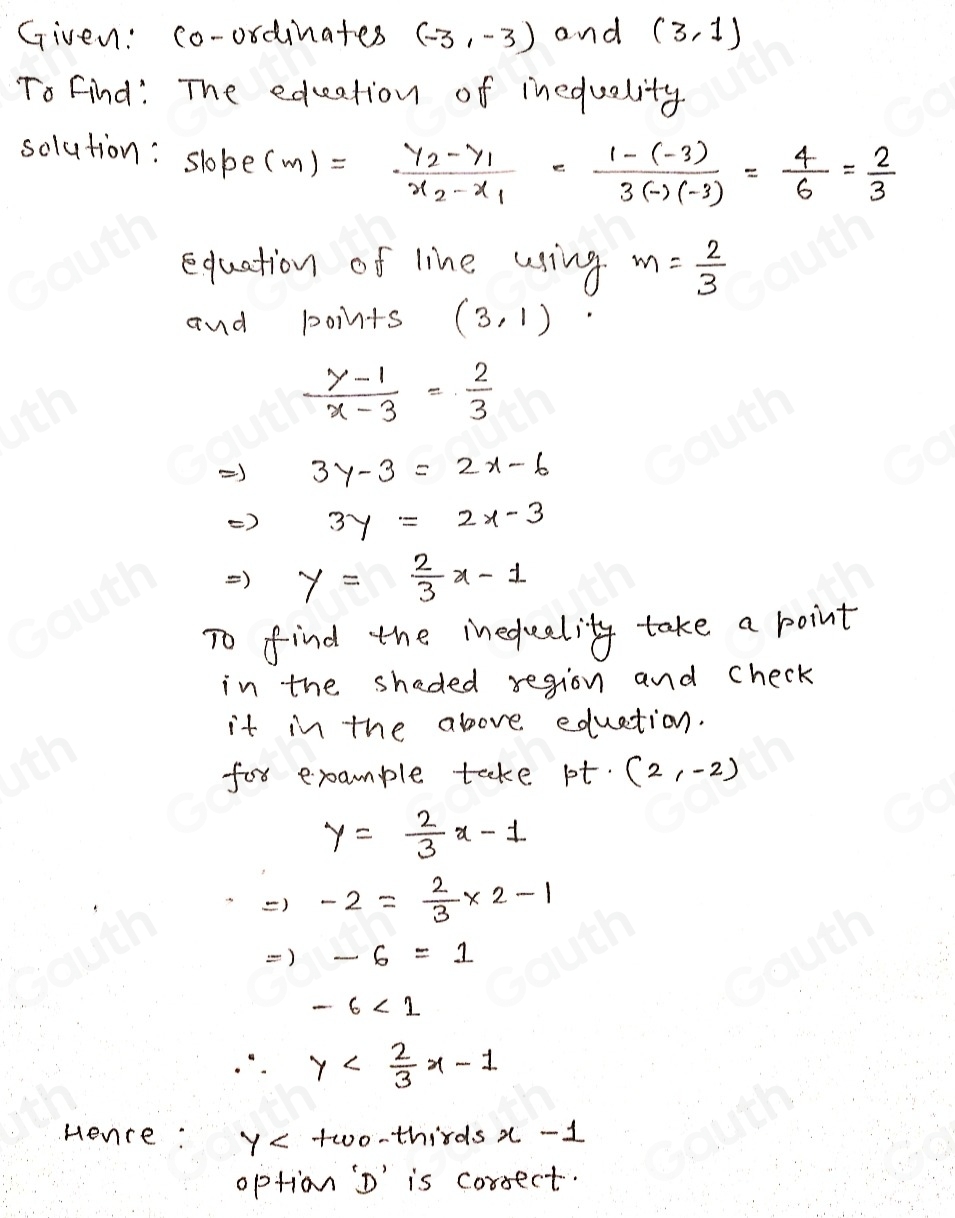 Given: co-ordinates (-3, -3) and (3, 1)
To Find: The equation of inequality
solution: slope(m) = y2-y1/x2-x1 = 1-(-3)/3(-)(-3) = 4/6 = 2/3
Equation of line using m = 2/3
and points (3,1).
y-1/x-3 = 2/3
=) 3y-3 = 2x-6
=) 3y = 2x-3
=) y = 2/3 x - 1
To find the inequality take a point
in the shaded region and check
it in the above equation.
for example take pt. (2, -2)
y = 2/3 x - 1
=) -2 = 2/3 × 2 - 1
=) -6 = 1
-6 < 1
∴ y < 2/3 x - 1
Hence: y < two-thirds x - 1
option 'D' is correct.